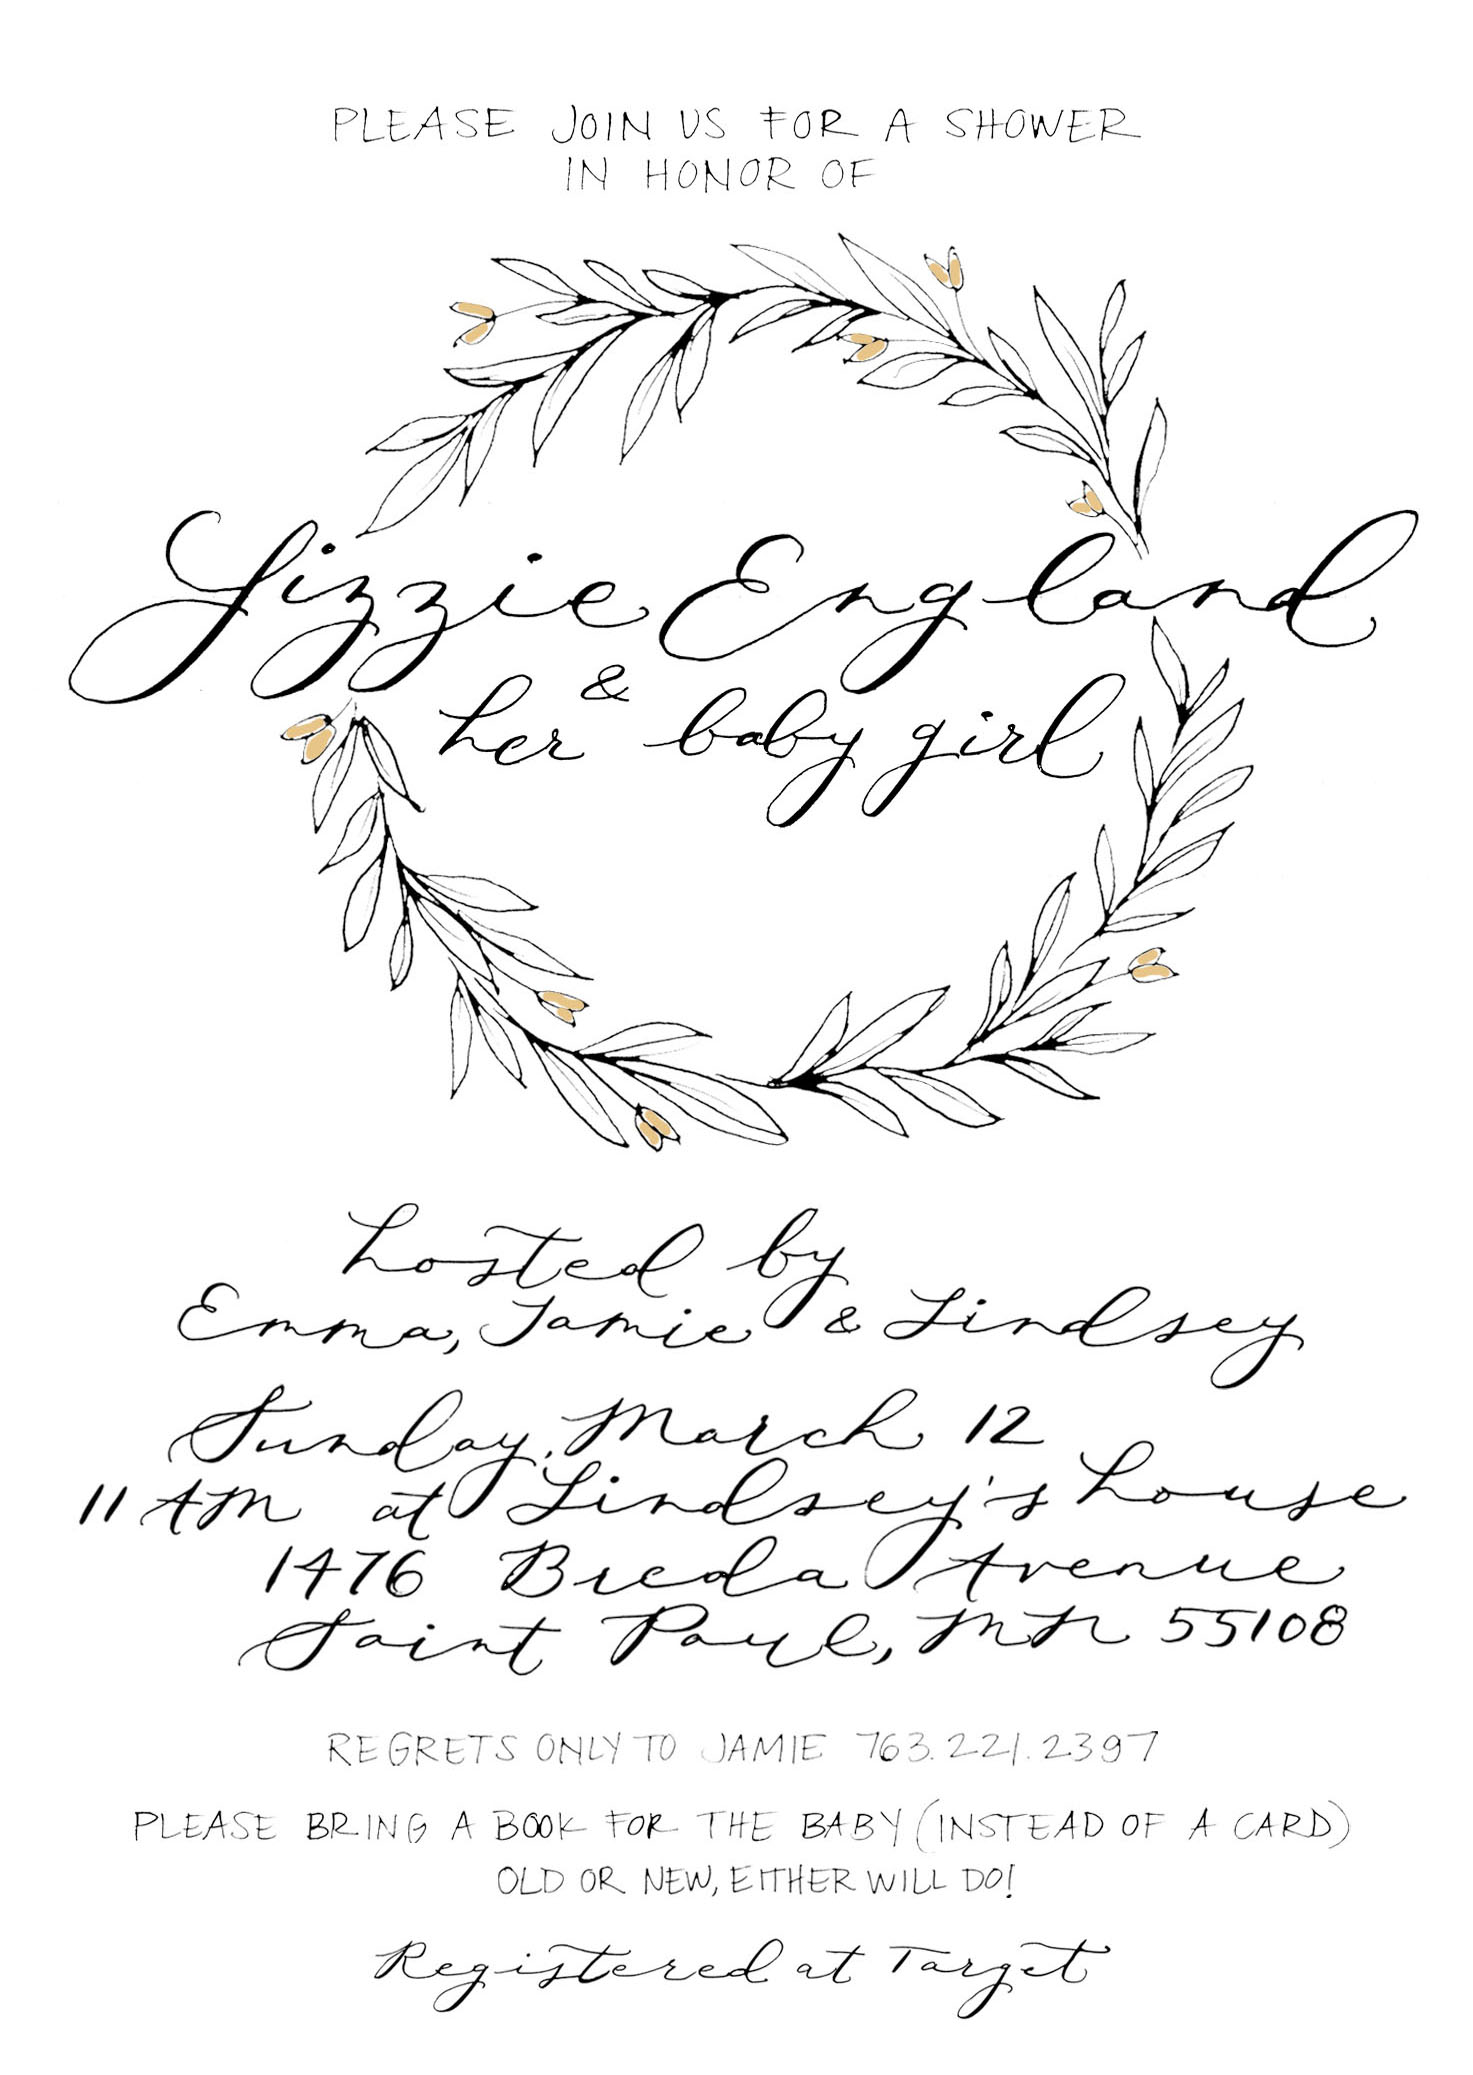 PLEASE JOIN US FOR A SHOWER
IN HONOR OF
Lizzie England
&
her baby girl
hosted by
Emma, Jamie & Lindsey
Sunday, March 12
11 AM at Lindsey's house
1476 Breda Avenue
Saint Paul, MN 55108
REGRETS ONLY TO JAMIE 763.221.2397
PLEASE BRING A BOOK FOR THE BABY (INSTEAD OF A CARD)
OLD OR NEW, EITHER WILL DO!
Registered at Target